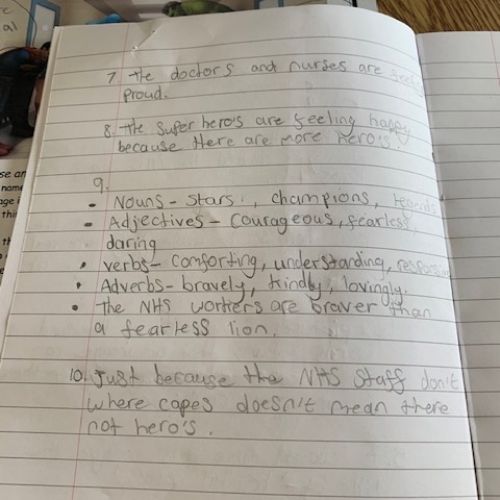 7. the doctors and nurses are feeling
proud.
8. the super hero's are feeling happy
because there are more hero's.
9.
• Nouns - stars, champions, legends
• Adjectives - courageous, fearless,
daring
• verbs - comforting, understanding,
• Adverbs - bravely, kindly, lovingly.
• the NHS workers are braver than
a fearless lion.
10. Just because the NHS staff don't
where capes doesn't mean there
not hero's.